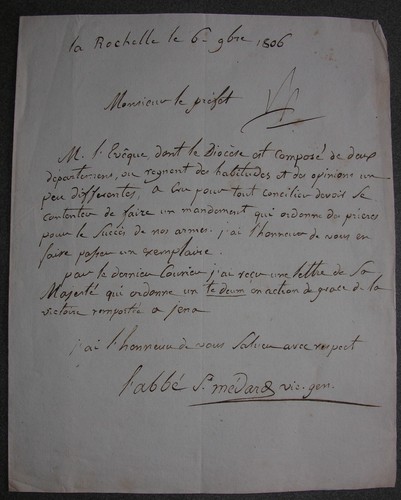 la Rochelle le 6 9bre 1806
Monsieur le préfet
M. l'Evêque, dont le Diocèse est composé de deux
départemens, ou regnent des habitudes et des opinions un
peu differentes, a cru pour tout concilier devoir se
contenter de faire un mandement qui ordonne des prieres
pour le succès de nos armes. j'ai l'honneur de vous en
faire passer un exemplaire.
par le dernier Courier j'ai recu une lettre de Sa
Majesté qui ordonne un te deum en action de grace de la
victoire remportée a jena
j'ai l'honneur de vous saluer avec respect
l'abbé St. médard vic. gen.